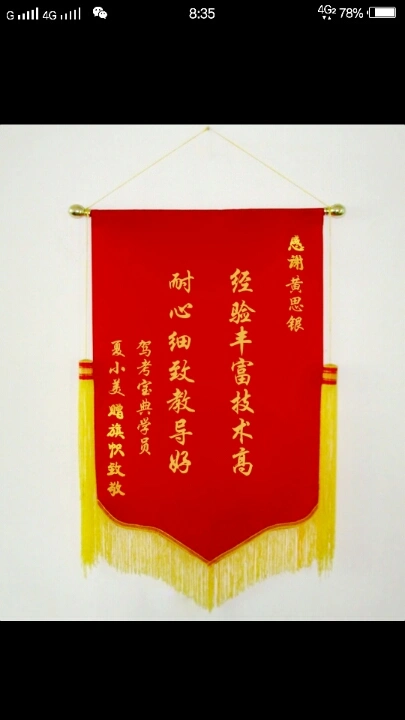 G 4G 8:35 4G2 78%
感谢黄思银
经验丰富技术高
耐心细致教导好
驾考宝典学员
夏小美赠旗帜致敬